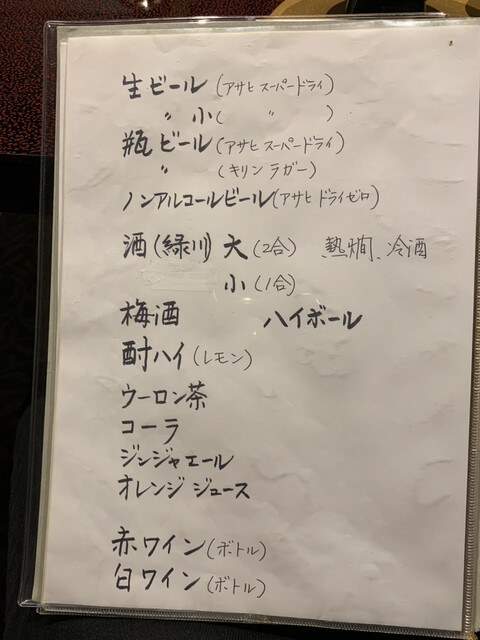 生ビール(アサヒ スーパードライ)
〃 小( 〃 )
瓶ビール(アサヒ スーパードライ)
〃 (キリン ラガー)
ノンアルコールビール(アサヒ ドライゼロ)
酒(緑川) 大(2合) 熱燗、冷酒
小(1合)
梅酒 ハイボール
酎ハイ(レモン)
ウーロン茶
コーラ
ジンジャエール
オレンジジュース
赤ワイン(ボトル)
白ワイン(ボトル)